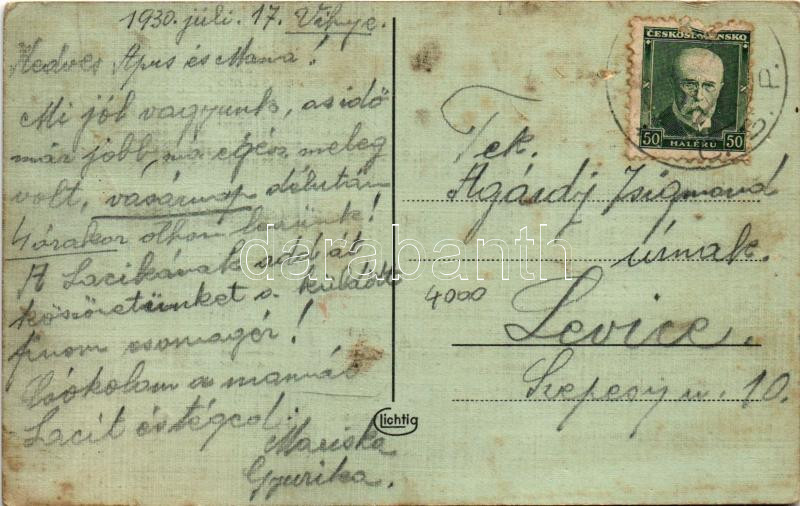 1930. júli. 17. Vihnye.
Kedves Apus és Mama!
Mi jól vagyunk, az idő
már jobb, ma egész meleg
volt, vasárnap délután
4 órakor otthon leszünk!
A Lacikának add át
köszöntetünket a küldött
finom csomagér!
Csókolom a mamát
Lacit és téged.
Mariska
Gyurika.
ČESKOSLOVENSKO
50 HALÉŘŮ 50
Tek.
Agárdy Zsigmond
úrnak.
4000
Levice.
Szepesi u. 10.
Lichtig
darabanth